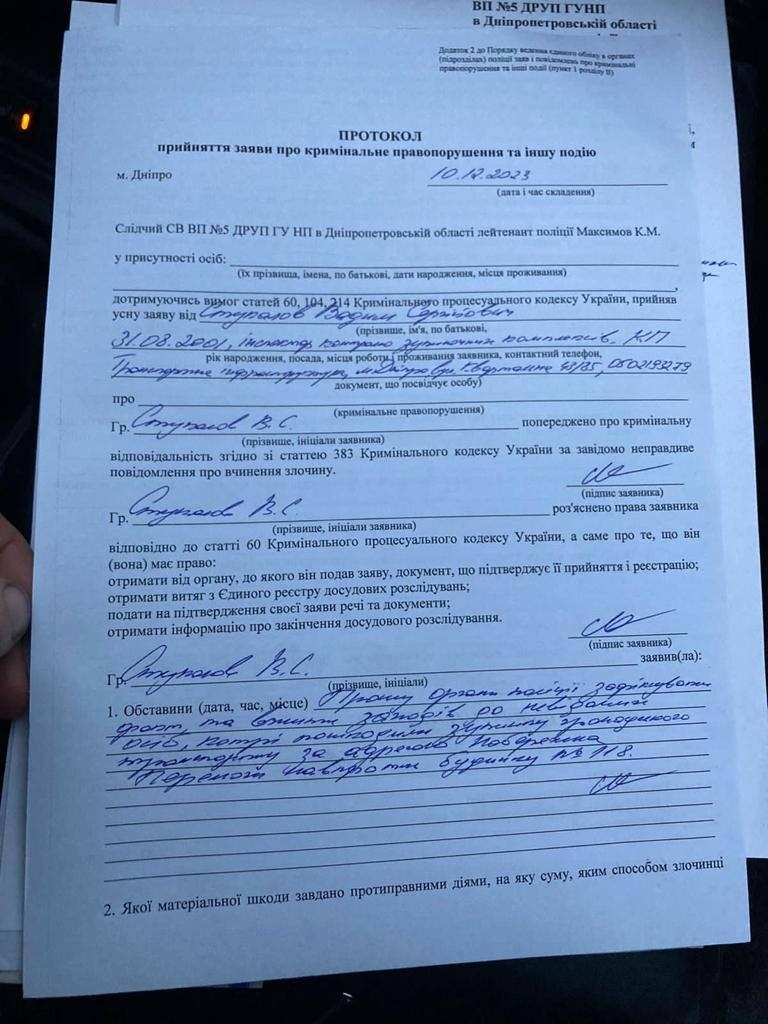 ВП №5 ДРУП ГУНП
в Дніпропетровській області
Додаток 2 до Порядку ведення єдиного обліку в органах
(підрозділах) поліції заяв і повідомлень про кримінальні
правопорушення та інші події (пункт 1 розділу II)
ПРОТОКОЛ
прийняття заяви про кримінальне правопорушення та іншу подію
м. Дніпро 10.12.2023
(дата і час складення)
Слідчий СВ ВП №5 ДРУП ГУ НП в Дніпропетровській області лейтенант поліції Максимов К.М.
у присутності осіб:
(їх прізвища, імена, по батькові, дати народження, місця проживання)
дотримуючись вимог статей 60, 104, 214 Кримінального процесуального кодексу України, прийняв
усну заяву від Вадим Сергійович
(прізвище, ім'я, по батькові,
31.08.2001, інспектор контролю зупиночних комплексів, КП
рік народження, посада, місця роботи, проживання заявника, контактний телефон,
Транспортна інфраструктура, м. Дніпро вул.
документ, що посвідчує особу)
про
(кримінальне правопорушення)
Гр. В.С. попереджено про кримінальну
(прізвище, ініціали заявника)
відповідальність згідно зі статтею 383 Кримінального кодексу України за завідомо неправдиве
повідомлення про вчинення злочину.
(підпис заявника)
Гр. В.С. роз'яснено права заявника
(прізвище, ініціали заявника)
відповідно до статті 60 Кримінального процесуального кодексу України, а саме про те, що він
(вона) має право:
отримати від органу, до якого він подав заяву, документ, що підтверджує її прийняття і реєстрацію;
отримати витяг з Єдиного реєстру досудових розслідувань;
подати на підтвердження своєї заяви речі та документи;
отримати інформацію про закінчення досудового розслідування.
(підпис заявника)
Гр. В.С. заявив(ла):
(прізвище, ініціали)
1. Обставини (дата, час, місце) Прошу органи поліції зафіксувати
факт, та вжити заходів до невідомих
осіб, котрі пошкодили зупинку громадського
транспорту за адресою Набережна
Перемоги навпроти будинку № 118.
2. Якої матеріальної шкоди завдано протиправними діями, на яку суму, яким способом злочинці